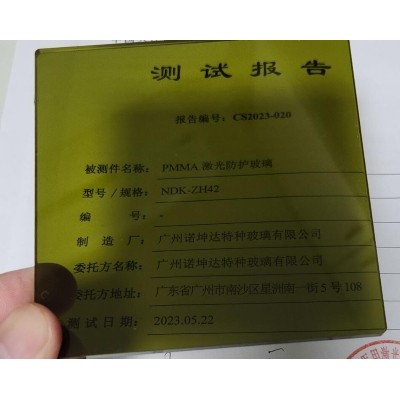 测试报告
报告编号：CS2023-020
被测件名称：PMMA 激光防护玻璃
型号/规格：NDK-ZH42
编号：-
制造厂：广州诺坤达特种玻璃有限公司
委托方名称：广州诺坤达特种玻璃有限公司
委托方地址：广东省广州市南沙区星洲南一街5号108
测试日期：2023.05.22